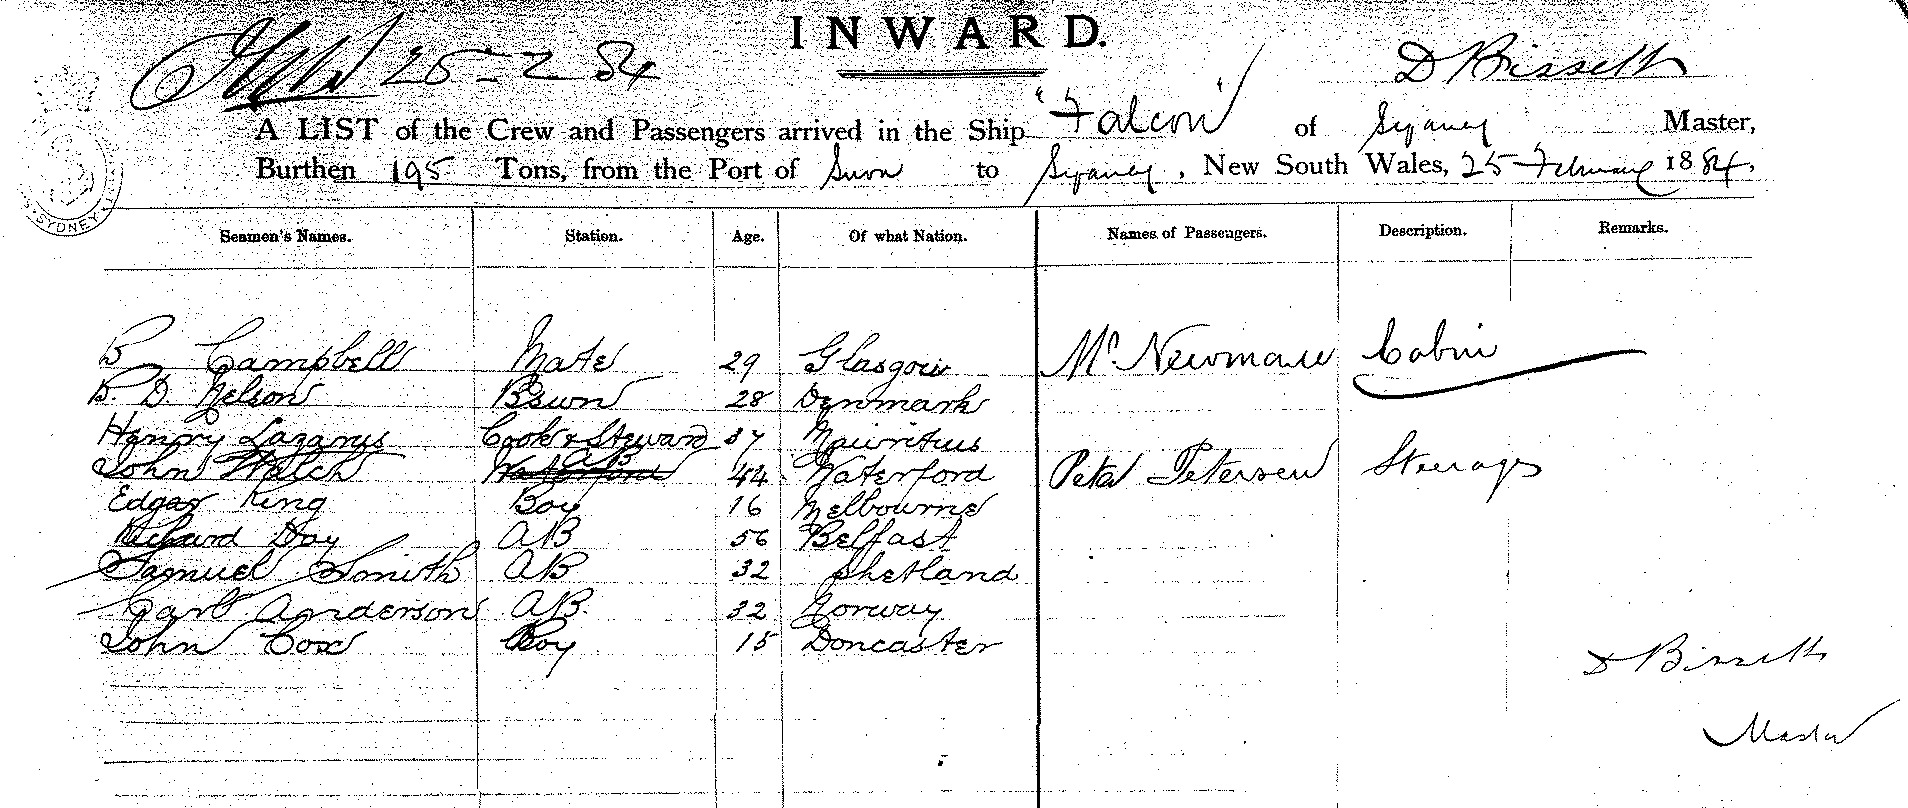 INWARD.
25-2-84
D Bissett
A LIST of the Crew and Passengers arrived in the Ship "Falcon" of Sydney Master,
Burthen 195 Tons, from the Port of Suva to Sydney, New South Wales, 25 February 1884,
SYDNEY
Seamen's Names. Station. Age. Of what Nation. Names of Passengers. Description. Remarks.
B Campbell Mate 29 Glasgow Mr. Newman Cabin
B. D. Nelson Bswn 28 Denmark
Henry Lazarus Cook & Steward 37 Mauritius
John Welch Waterford AB 44 Waterford Peter Petersen Steerage
Edgar King Boy 16 Melbourne
Richard Hay AB 56 Belfast
Samuel Smith AB 32 Shetland
Carl Anderson AB 32 Norway
John Cox Boy 15 Doncaster
D Bissett
Master